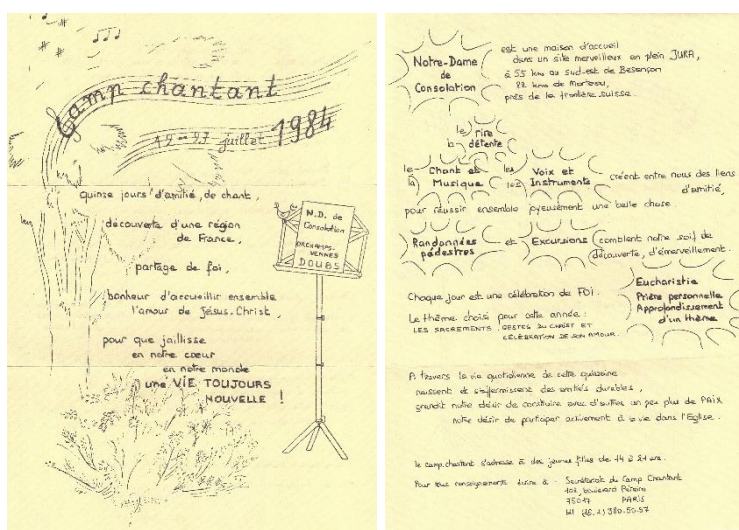 Camp chantant
12-27 juillet 1984
quinze jours d'amitié, de chant,
découverte d'une région
de France,
partage de foi,
bonheur d'accueillir ensemble
l'amour de Jésus-Christ,
pour que jaillisse
en notre cœur
en notre monde
une VIE TOUJOURS
NOUVELLE !
N.D. de
Consolation
ORCHAMPS-
VENNES
DOUBS
Notre-Dame
de
Consolation
est une maison d'accueil
dans un site merveilleux en plein JURA,
à 55 kms au sud-est de Besançon
22 kms de Morteau,
près de la frontière suisse.
le rire
la détente
le Chant et les Voix et
la Musique Instruments créent entre nous des liens
d'amitié,
pour réussir ensemble joyeusement une belle chose.
Randonnées et Excursions comblent notre soif de
pédestres découverte, d'émerveillement.
Chaque jour est une célébration de FOI.
Eucharistie
Prière personnelle
Approfondissement
d'un thème
Le thème choisi pour cette année :
LES SACREMENTS GESTES DU CHRIST ET
CÉLÉBRATION DE SON AMOUR.
A travers la vie quotidienne de cette quinzaine
naissent et s'affermissent des amitiés durables,
grandit notre désir de construire avec d'autres un peu plus de PAIX
notre désir de participer activement à la vie dans l'Eglise.
Le camp chantant s'adresse à des jeunes filles de 14 à 21 ans.
Pour tous renseignements écrire à - Secrétariat du Camp Chantant
boulevard Péreire
75017 PARIS
(16.1) 380.50.57